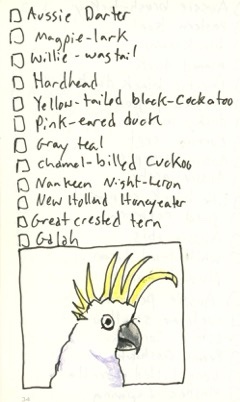 Aussie Darter
Magpie-lark
Willie-wagtail
Hardhead
Yellow-tailed black-Cockatoo
Pink-eared duck
Gray teal
Channel-billed Cuckoo
Nankeen Night-heron
New Holland Honeyeater
Great crested tern
Galah